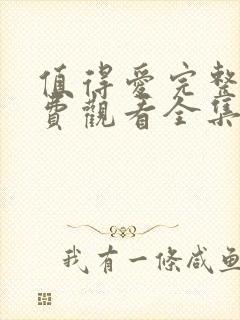 值得愛完整
費觀看全集
我有一條咸魚